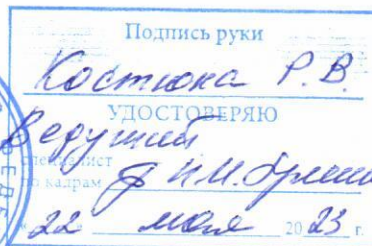 Подпись руки
Костюка Р.В.
УДОСТОВЕРЯЮ
Ведущий
специалист
по кадрам
"22 мая 2023 г.